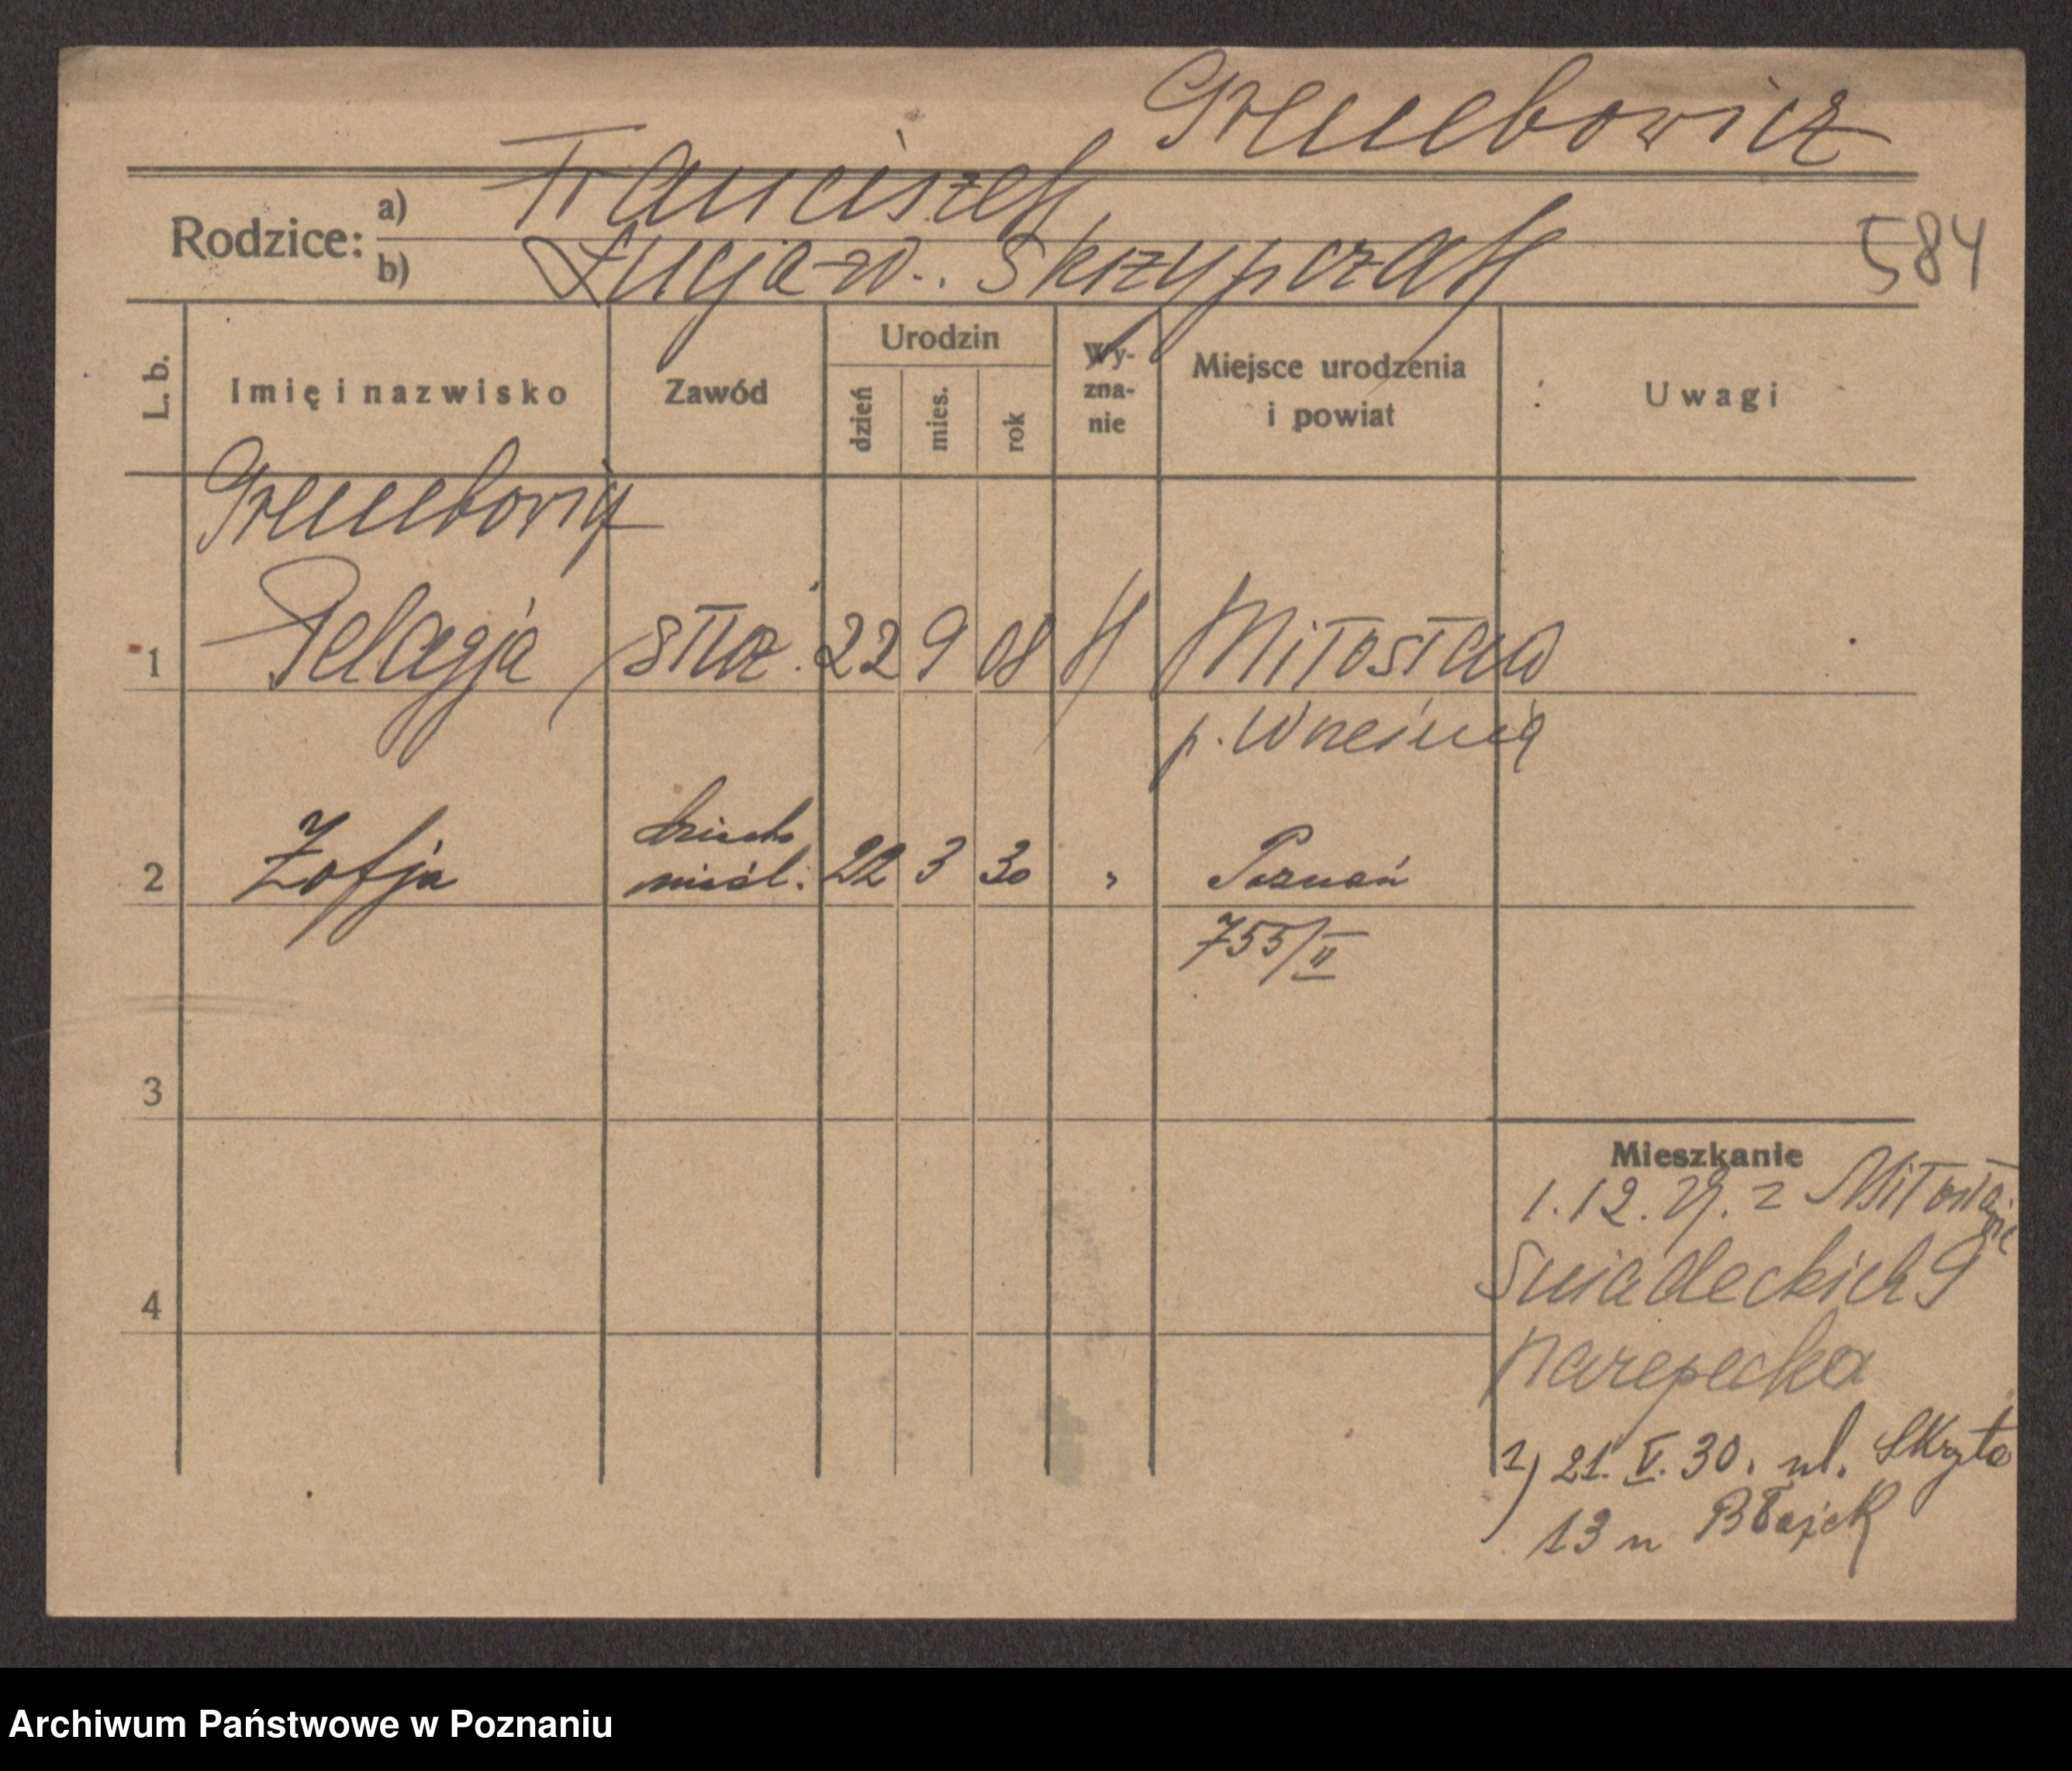 Grzembowicz
Rodzice: a) Franciszek
b) Łucja zd. Skrzypczak
584
L. b. Imię i nazwisko Zawód Urodzin dzień mies. rok Wy-zna-nie Miejsce urodzenia i powiat Uwagi
Grzembowicz
1 Pelagja służ. 22 9 08 k Miłosław
p. Września
2 Zofja dziecko nieśl. 22 3 30 " Poznań
755/II
3
Mieszkanie
1.12.29. z Miłosła
Śniadeckich 9
4
1) 21. V. 30. ul. Skryta
13 u Błajek
Archiwum Państwowe w Poznaniu